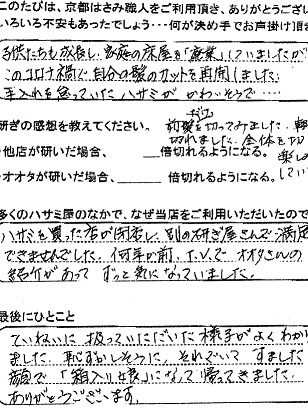 このたびは、京都はさみ職人をご利用頂き、ありがとうござい
いろいろ不安もあったでしょう・・・何が決め手でお声掛け頂け
子供たちも成長し、家庭の床屋を「廃業」していましたが
このコロナ禍で自分の髪のカットを再開しました。
手入れを怠っていたハサミが かわいそうで‥‥
研ぎの感想を教えてください。
前髪を切ってみました。軽
切れました。全体を切
楽し
してい
・他店が研いだ場合、____倍切れるようになる。
・オオタが研いだ場合、____倍切れるようになる。
多くのハサミ屋のなかで、なぜ当店をご利用いただいたので
ハサミを買った店が閉店し、別の研ぎ屋さんで満足
できませんでした。何年か前、T.V.で オオタさんの
紹介があって ずっと気になっていました。
最後にひとこと
ていねいに 扱っていただいた様子が よくわかり
ました。恥ずかしそうに、それでいて すました
顔で「箱入り娘」になって帰ってきました。
ありがとうございます。